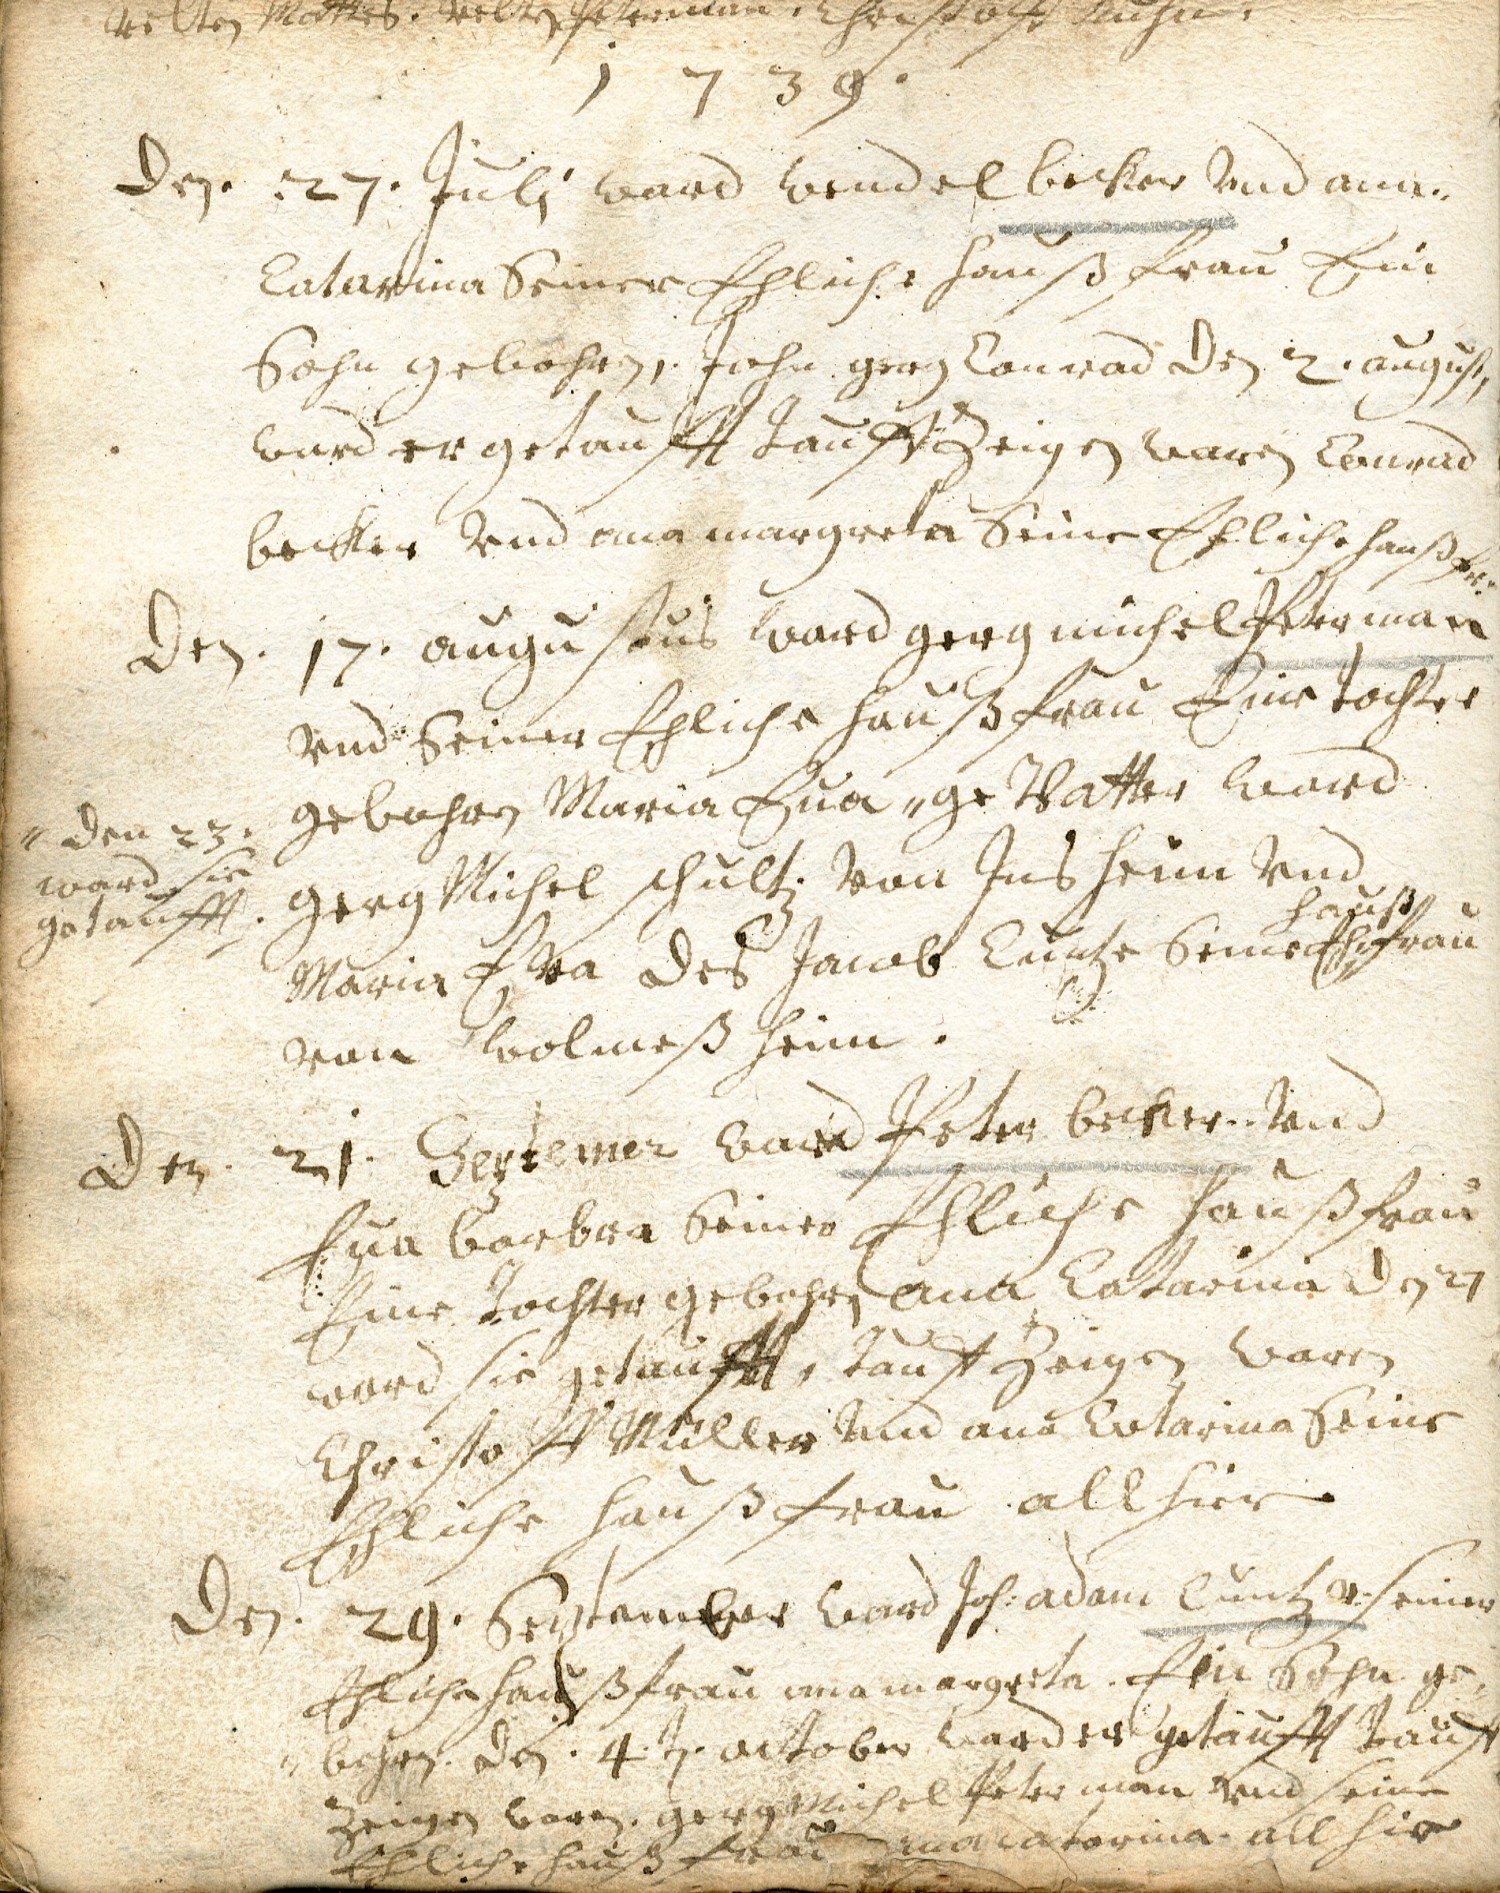 velten Mattes. velten Peterman. Christofft Kuhn.
1739.
Den. 27. Julj ward wendel becker vnd ana
Catarina Seiner Ehliche haußfrau Ein
Sohn gebohren, John gerg Conrad den 2. august,
ward er getaufft tauff Zeigen waren Conrad
becker vnd ana margreta Seine Ehliche haußfr:
Den. 17. augustus ward gerg michel Peterman
vnd Seiner Ehliche haußfrau Eine tochter
gebohren Maria Eua „ ge Vatter ward
„ den 23.
ward sie
getaufft.
gerg Michel schultz von Insheim vnd
Maria Eva des Jacob Cuntze Seine Eh hauß frau
von wolmeßheim.
Den. 21. Septemer ward Peter becker vnd
Eua barbra Seiner Ehliche haußfrau
Eine tochter gebohren ana Catarina den 27
ward sie getaufft, tauff Zeigen waren
Christoff Müller vnd ana Catarina Seine
Ehliche haußfrau all hier
Den. 29. September ward Joh: adam Cuntz v: seiner
Ehliche haußfrau ana margreta. Ein Sohn ge,
bohren. den. 4. october ward er getaufft tauff
Zeigen waren. gerg Michel Peterman vnd seine
Ehliche haußfrau ana catarina. all hir